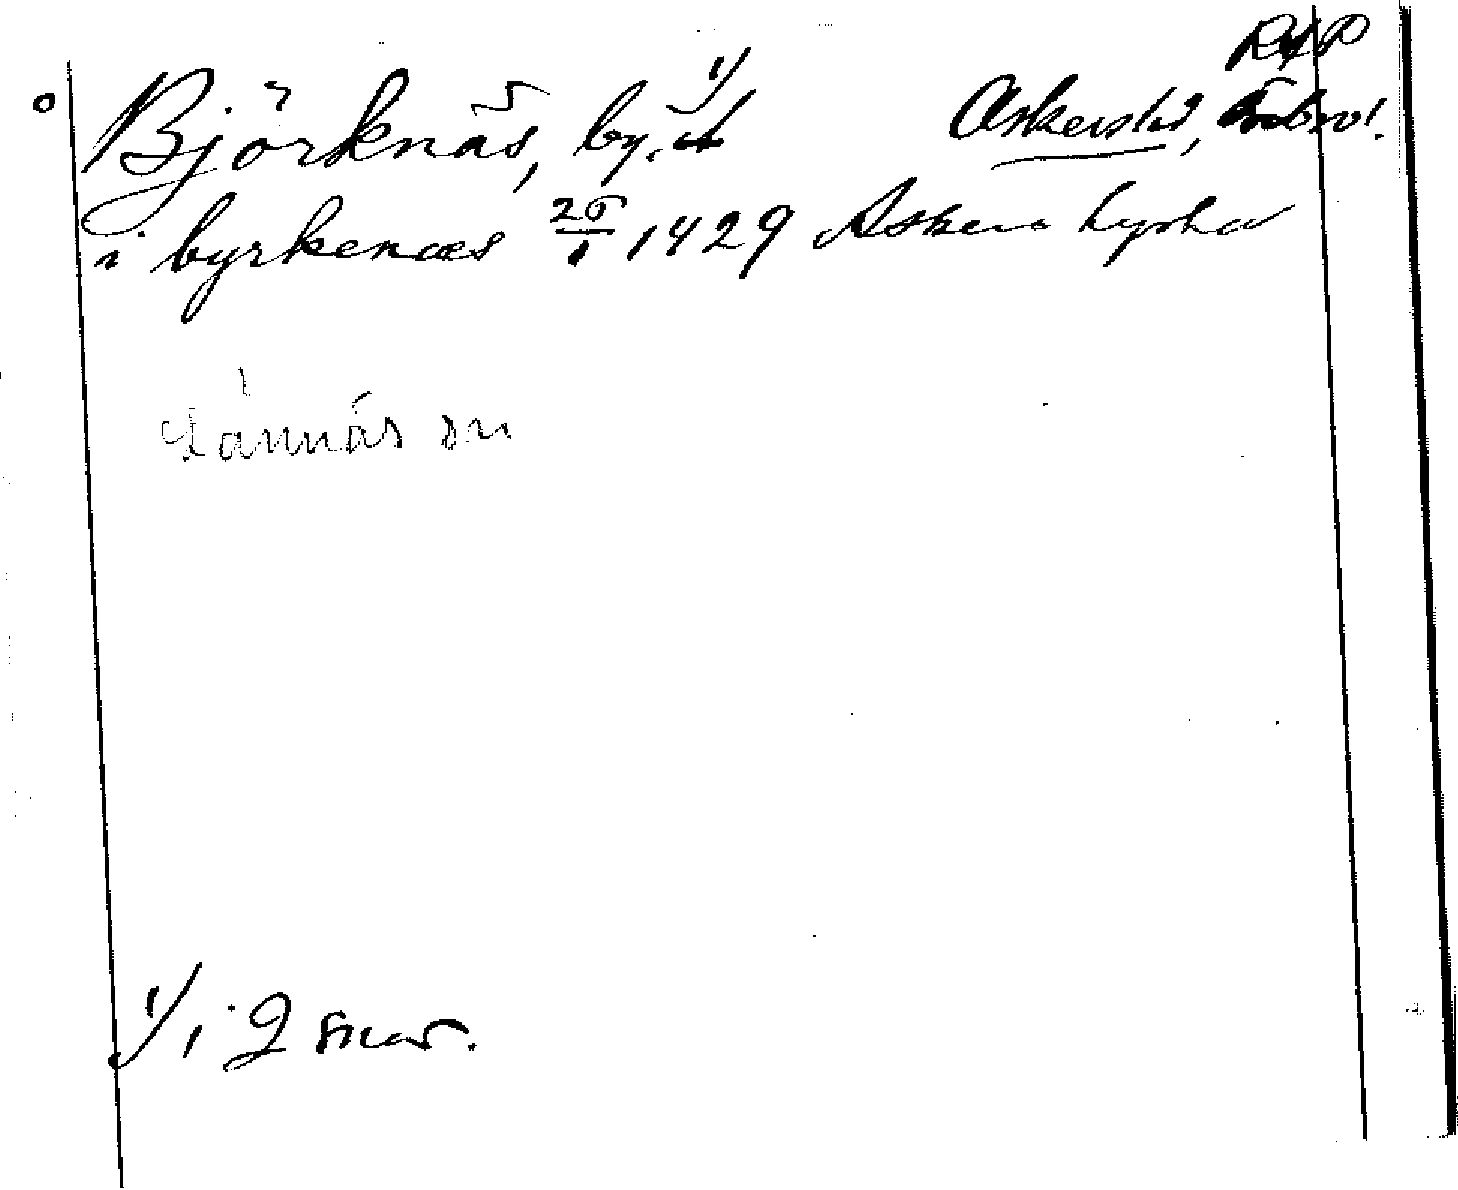 RAP
Björknäs, by. 1/ Askersund, Örebro l.
i byrkenæs 25/1 1429 Askers kyrka
Tännäs sn
1/ i 2 snar.